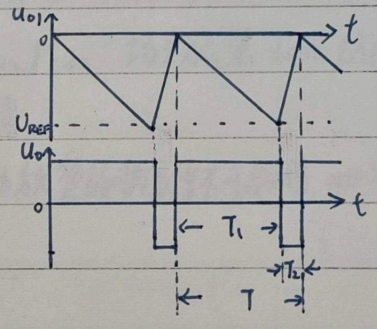 u01
0
t
UREF
u0
0
t
T1
T2
T